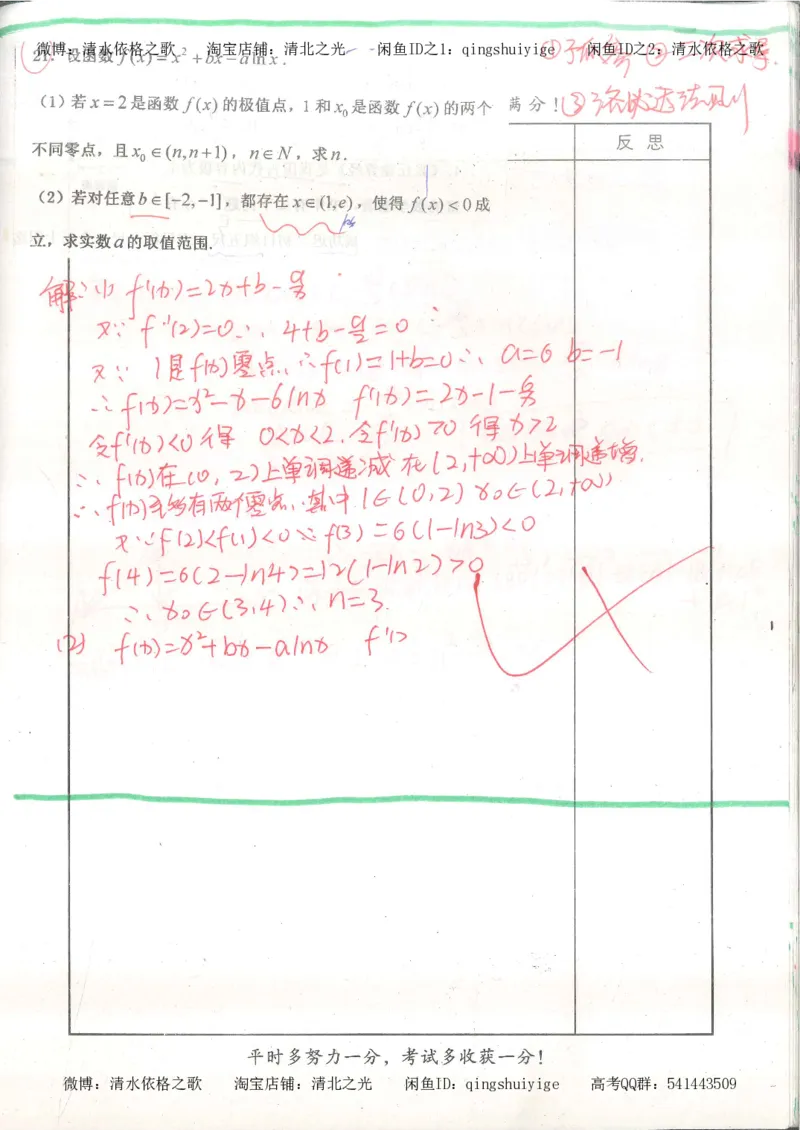 微博：清水依格之歌 淘宝店铺：清北之光 闲鱼ID之1：qingshuiyige 闲鱼ID之2：清水依格之歌
21. 设函数f(x)=x²+bx-alnx.
①分离参 ②二次求导
（1）若x=2是函数f(x)的极值点，1和x₀是函数f(x)的两个
满分！③洛必达法则
不同零点，且x₀∈(n,n+1)，n∈N，求n.
反思
（2）若对任意b∈[-2,-1]，都存在x∈(1,e)，使得f(x)<0成
立，求实数a的取值范围.
解：(1) f'(x)=2x+b-a/x
又∵f'(2)=0∴4+b-a/2=0
又∵1是f(x)零点∴f(1)=1+b=0∴a=6 b=-1
∴f(x)=x²-x-6lnx f'(x)=2x-1-6/x
令f'(x)<0得 0<x<2.令f'(x)>0得x>2
∴f(x)在(0,2)上单调递减 在(2,+∞)上单调递增.
∴f(x)至多有两个零点.其中1∈(0,2) x₀∈(2,+∞)
又∵f(2)<f(1)<0∵f(3)=6(1-ln3)<0
f(4)=6(2-ln4)=12(1-ln2)>0
∴x₀∈(3,4)∴n=3.
(2) f(x)=x²+bx-alnx f'(
平时多努力一分，考试多收获一分！
微博：清水依格之歌 淘宝店铺：清北之光 闲鱼ID：qingshuiyige 高考QQ群：541443509